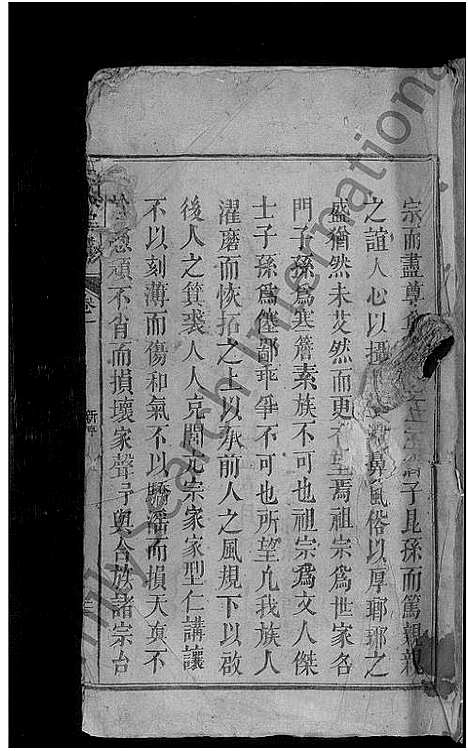 宗而盡尊子昆孫而篤親親
之誼人心以攝風俗以厚瑯瑯之
盛猶然未艾然而更有望焉祖宗爲世家名
門子孫爲寒簷素族不可也祖宗爲文人傑
士子孫爲傖鄙乖爭不可也所望凡我族人
濯磨而恢拓之上以承前人之風規下以啟
後人之箕裘人人克閭元宗家家型仁講讓
不以刻薄而傷和氣不以驕潘而損天真不
忿頑不省而損壞家聲予與合族諸宗台
卷一
二
International